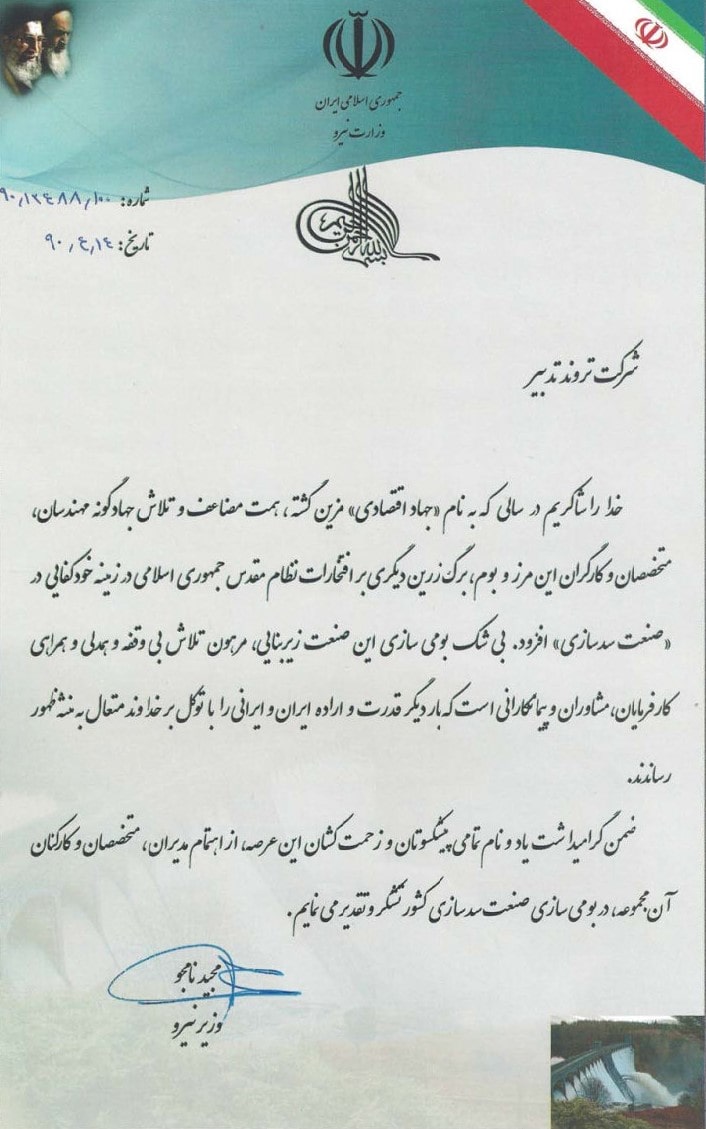 جمهوری اسلامی ایران
وزارت نیرو
شماره: ۹۰/۱۲۴۸۸/۱۰۰
تاریخ: ۹۰/۴/۱۴
بسم الله الرحمن الرحیم
شرکت تروند تدبیر
خدا را شاکریم در سالی که به نام «جهاد اقتصادی» مزین گشته، همت مضاعف و تلاش جهادگونه مهندسان،
متخصصان و کارگران این مرز و بوم، برگ زرین دیگری بر افتخارات نظام مقدس جمهوری اسلامی در زمینه خودکفایی در
«صنعت سدسازی» افزود. بی شک بومی سازی این صنعت زیربنایی، مرهون تلاش بی وقفه و همدلی و همراهی
کارفرمایان، مشاوران و پیمانکارانی است که بار دیگر قدرت و اراده ایران و ایرانی را با توکل بر خداوند متعال به منثه ظهور
رساندند.
ضمن گرامیداشت یاد و نام تمامی پیشکسوتان و زحمت کشان این عرصه، از اهتمام مدیران، متخصصان و کارکنان
آن مجموعه، در بومی سازی صنعت سدسازی کشور تشکر و تقدیر می نمایم.
مجید نامجو
وزیر نیرو